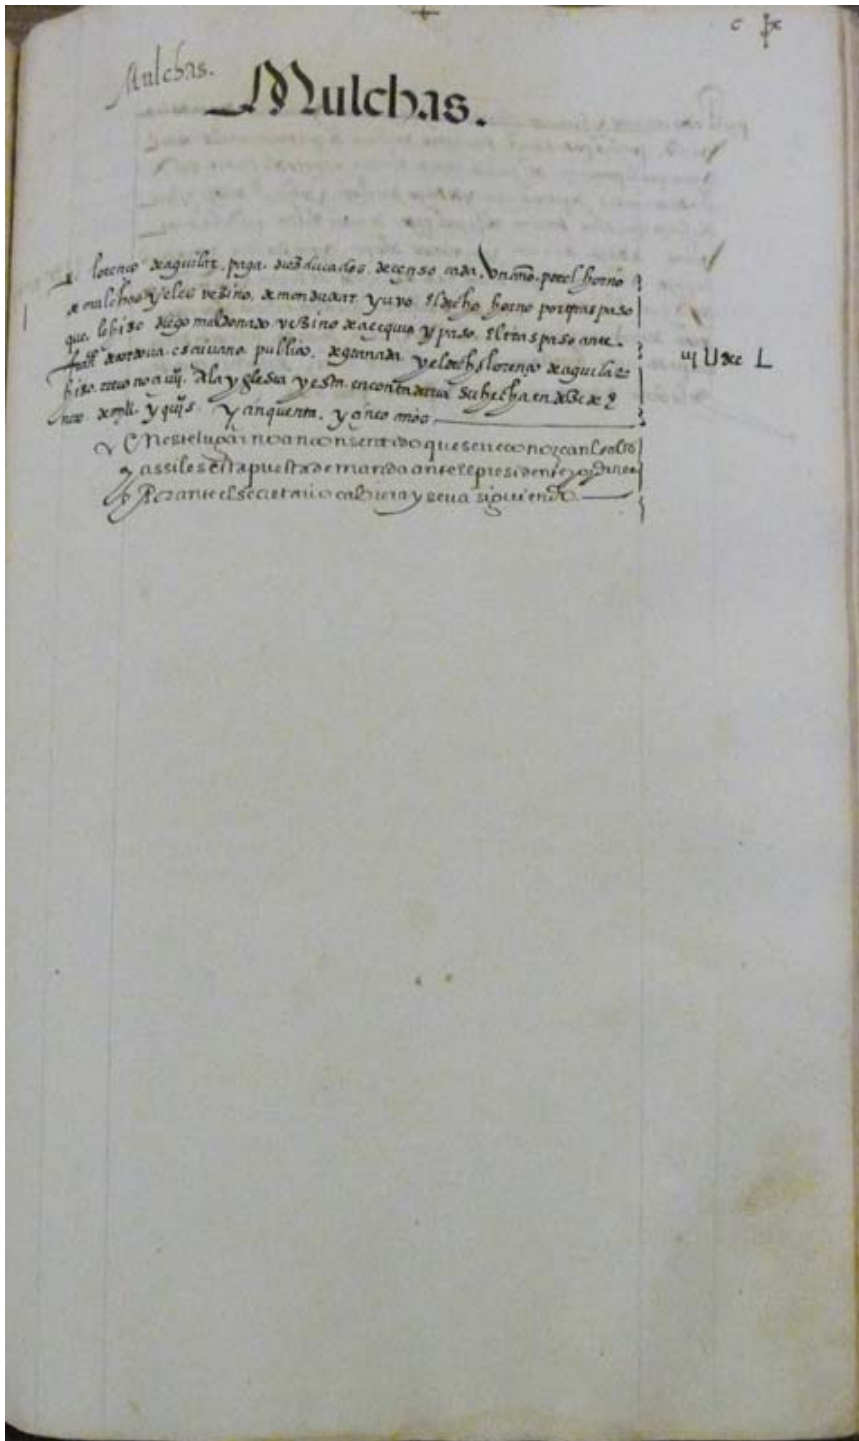 Mulchas.
Mulchas.
lorenço de aguilar. paga. diez ducados. de censo cada. Un año. por el horno
de mulchas y el es vezino. de mondujar y uvo. El dicho horno por traspaso
que. le hizo diego maldonado vezino de acequia y paso. El traspaso ante.
de cordova. escrivano. publico. de granada y el dicho lorenço de aguilar
hizo. A la yglesia y esta. en contaduria su fecha en
de mill. y quis. y cinquenta. y cinco años
En este lugar no an consentido que se reconozcan
assi les esta puesta demanda ante el presidente y oydores
ante el secretario cabrera y se va siguiendo.